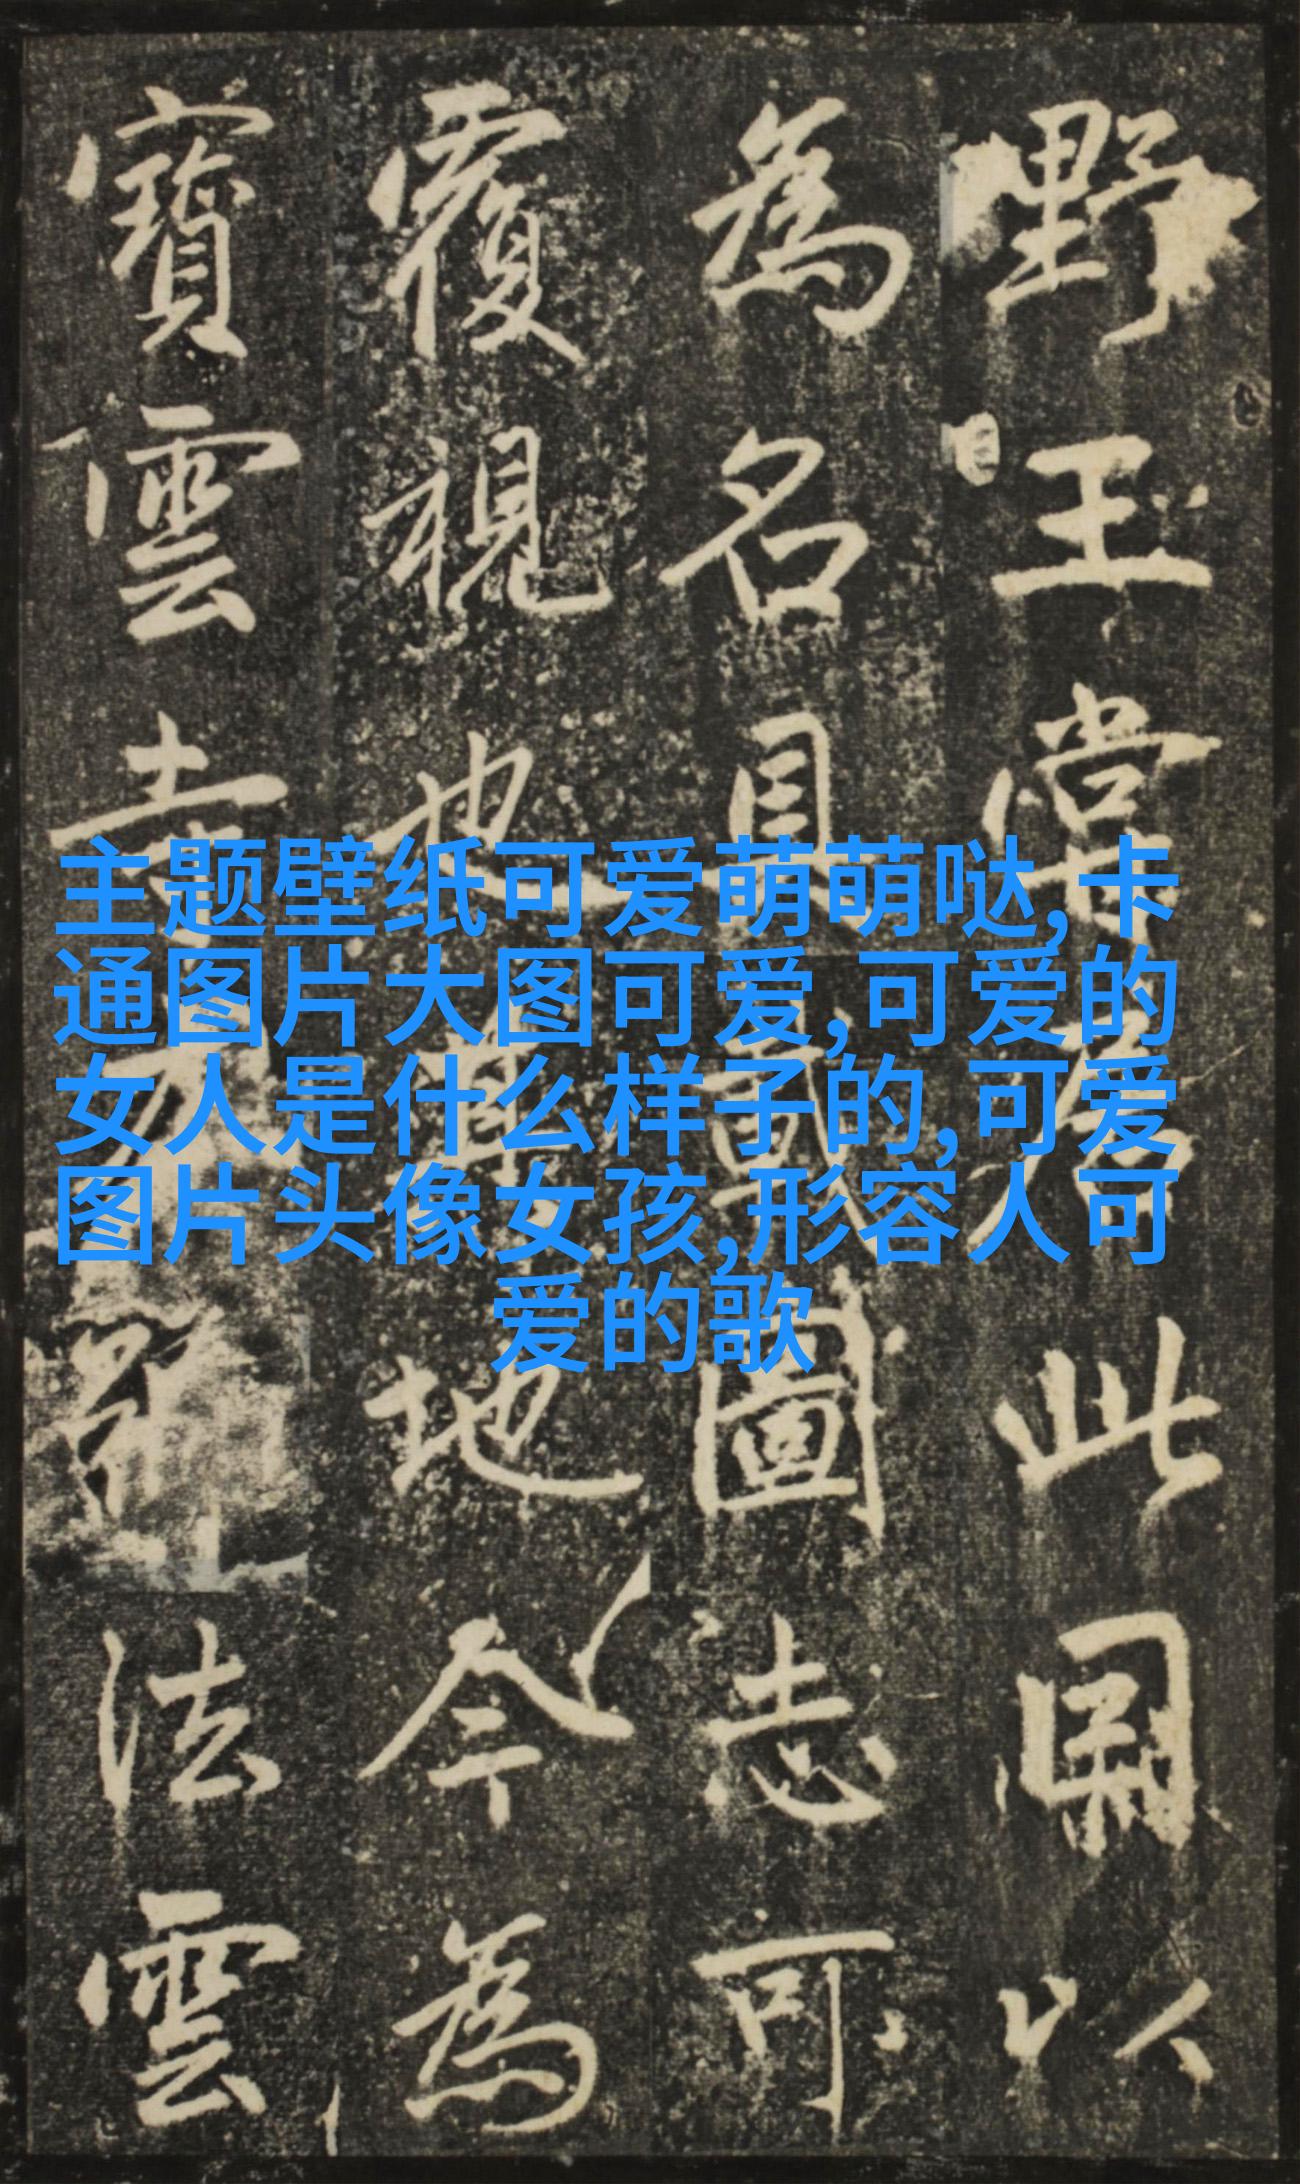 野王常居此因以
為名具載圖志可
覆視也其地今為
寶雲寺
法雲
主题壁纸可爱萌萌哒,卡
通图片大图可爱,可爱的
女人是什么样子的,可爱
图片头像女孩,形容人可
爱的歌